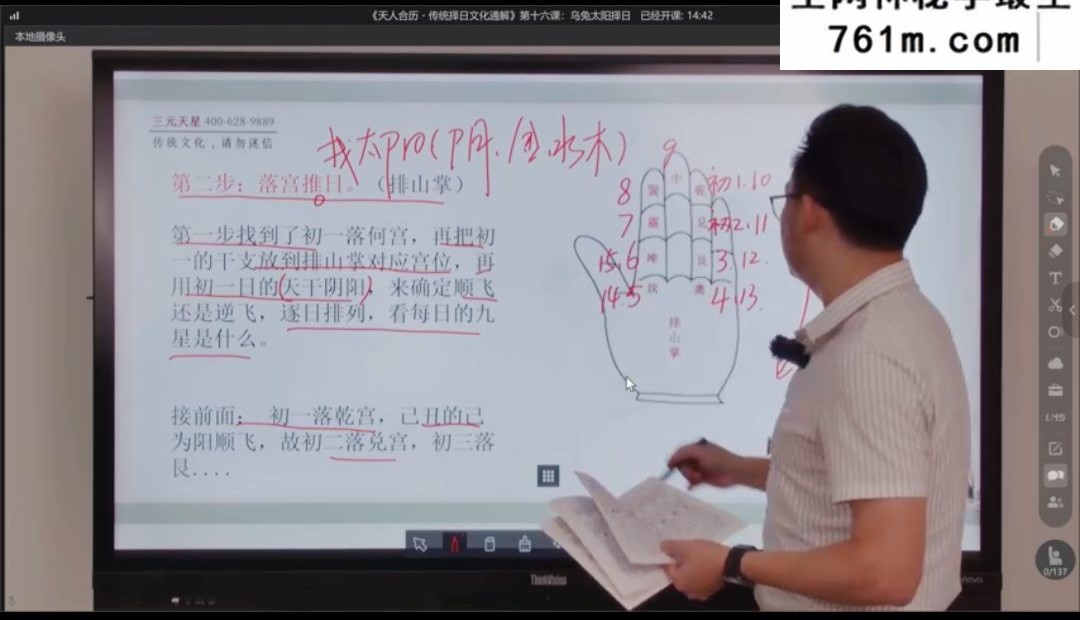 《天人合历·传统择日文化通解》第十六课：乌兔太阳择日 已经开课: 14:42
本地摄像头
761m.com
三元天星 400-628-9889
传统文化、请勿迷信
找太阳(阴、金、水木)
第二步：落宫推日。（排山掌）
第一步找到了初一落何宫，再把初
一的干支放到排山掌对应宫位，再
用初一日的(天干阴阳)，来确定顺飞
还是逆飞，逐日排列，看每日的九
星是什么。
接前面：初一落乾宫，己丑的己
为阳顺飞，故初二落兑宫，初三落
艮....
9
8 巽 中 乾 初1.10
7 震 兑 初2.11
15.6 坤 艮 3.12.
14.5 坎 离 4.13.
排
山
掌
ThinkVision
LMS
0/137